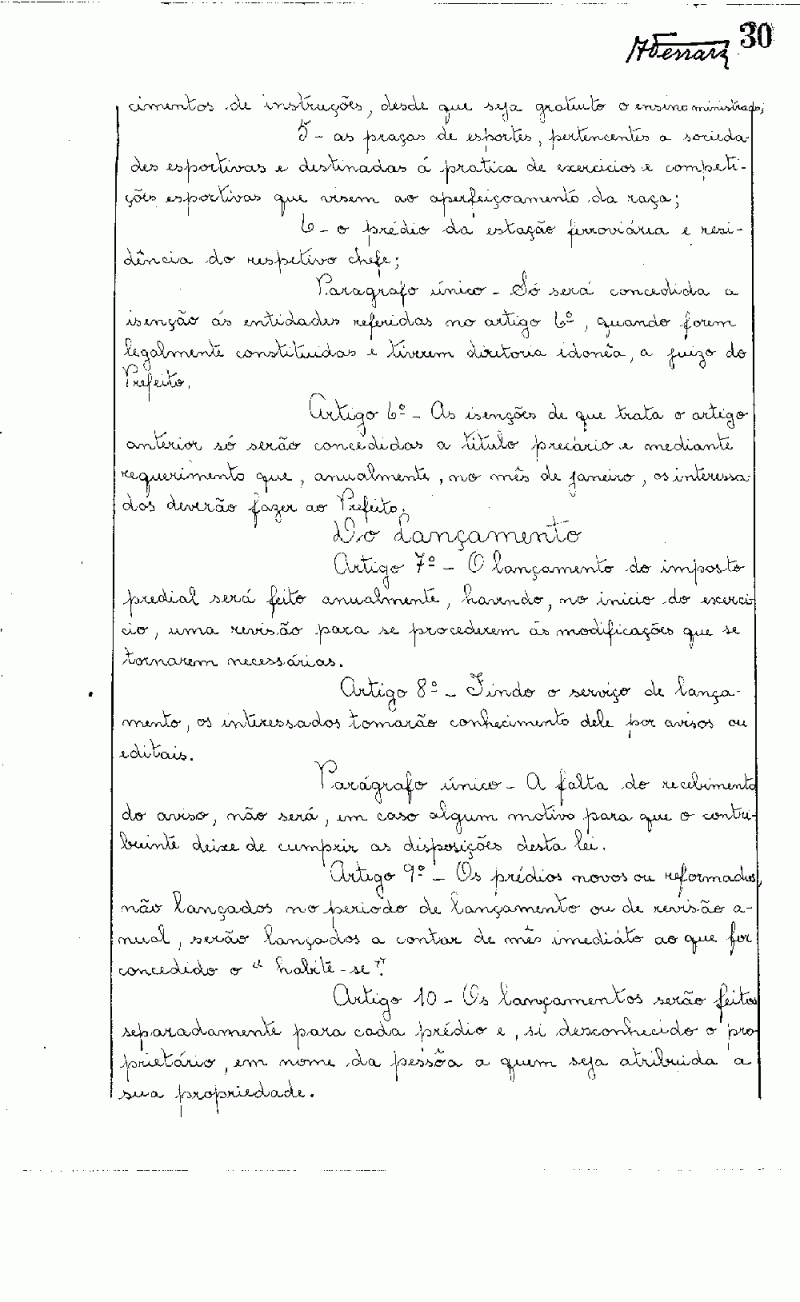 30
cimentos de instruções, desde que seja gratuito o ensino ministrado;
5 - as praças de esportes, pertencentes a socieda
des esportivas e destinadas á pratica de exercicios e competi-
ções esportivas que visem ao aperfeiçoamento da raça;
6 - o prédio da estação ferroviária e resi-
dência do respetivo chefe;
Paragrafo único - Só será concedida a
isenção ás entidades referidas no artigo 6º, quando forem
legalmente constituidas e tiverem diretoria idonêa, a juizo do
Prefeito.
Artigo 6º - As isenções de que trata o artigo
anterior só serão concedidas a titulo precário e mediante
requerimento que, anualmente, no mês de janeiro, os interessa
dos deverão fazer ao Prefeito.
Do Lançamento
Artigo 7º - O lançamento do imposto
predial será feito anualmente, havendo, no inicio do exerci
cio, uma revisão para se procederem ás modificações que se
tornarem necessárias.
Artigo 8º - Findo o serviço de lança-
mento, os interessados tomarão conhecimento dele por avisos ou
editais.
Parágrafo único - A falta do recebimento
do aviso, não será, em caso algum motivo para que o contri-
buinte deixe de cumprir as disposições desta lei.
Artigo 9º - Os prédios novos ou reformados,
não lançados no periodo de lançamento ou de revisão a-
nual, serão lançados a contar de mês imediáto ao que for
concedido o "habite-se".
Artigo 10 - Os lançamentos serão feitos
separadamente para cada prédio e, si desconhecido o pro
prietário, em nome da pessôa a quem seja atribuida a
sua propriedade.